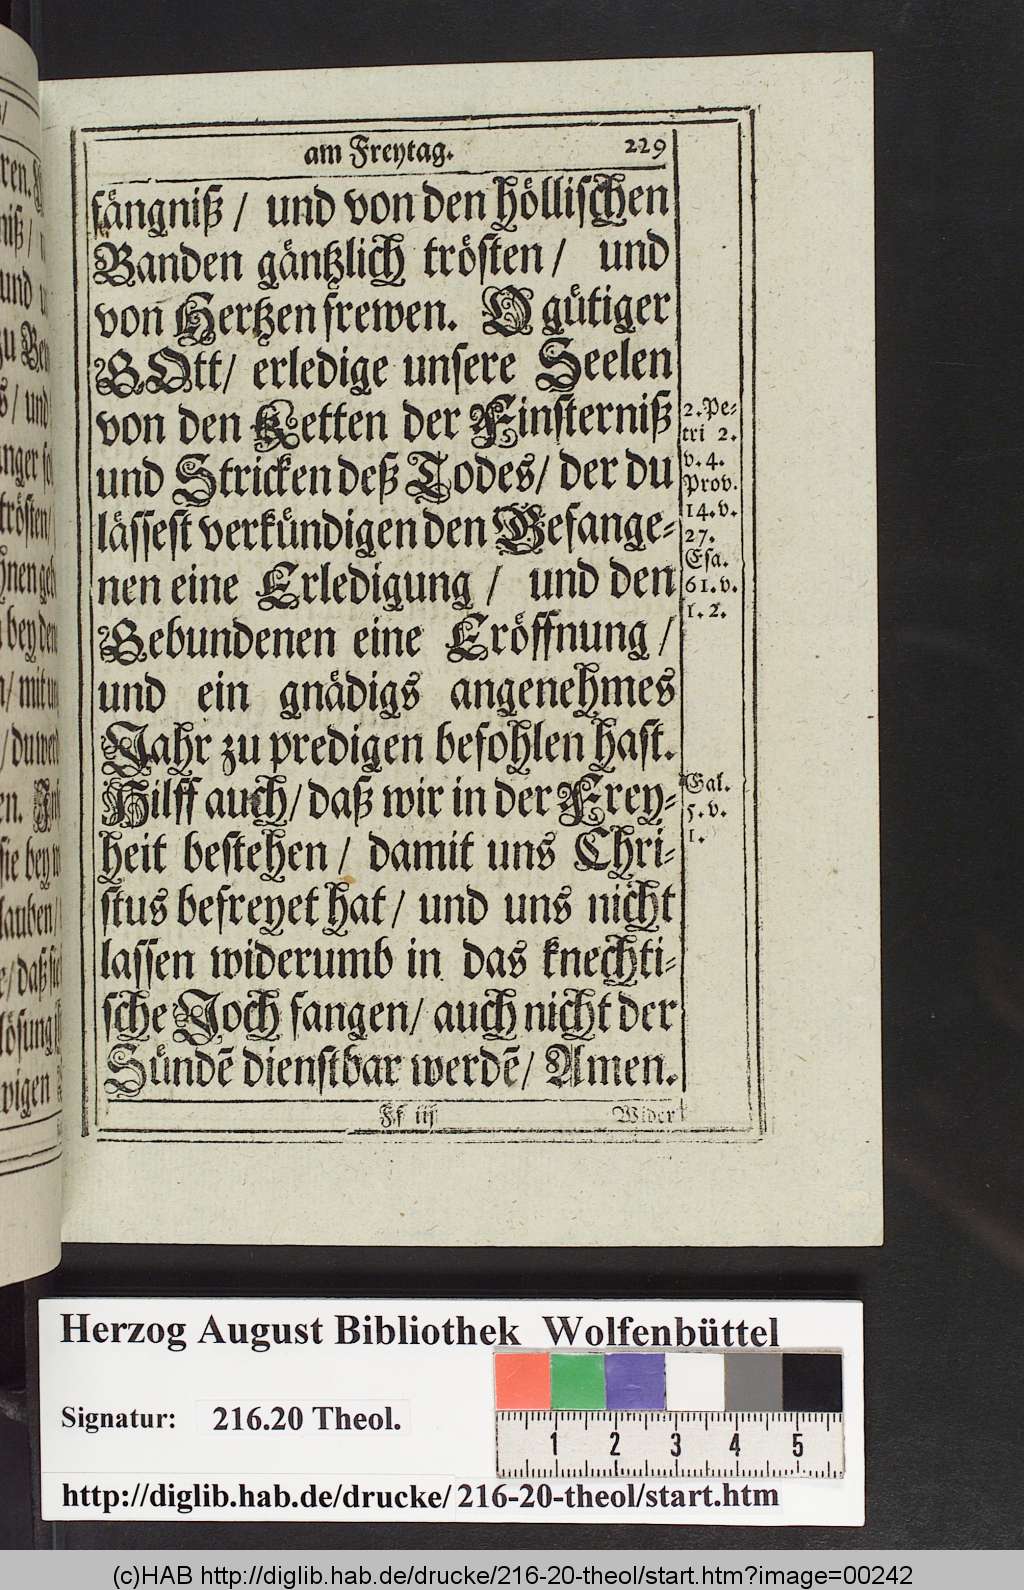 am Freytag. 229
fängniß / und von den höllischen
Banden gäntzlich trösten / und
von Hertzen frewen. O gütiger
GOtt / erledige unsere Seelen
von den Ketten der Finsterniß
und Stricken deß Todes / der du
lässest verkündigen den Gefange-
nen eine Erledigung / und den
Gebundenen eine Eröffnung /
und ein gnädigs angenehmes
Jahr zu predigen befohlen hast.
Hilff auch / daß wir in der Frey-
heit bestehen / damit uns Chri-
stus befreyet hat / und uns nicht
lassen widerumb in das knechti-
sche Joch fangen / auch nicht der
Sündē dienstbar werdē / Amen.
Ff iij Wider
2. Pe-
tri 2.
v. 4.
Prov.
14. v.
27.
Esa.
61. v.
1. 2.
Gal.
5. v.
1.
Herzog August Bibliothek Wolfenbüttel
Signatur: 216.20 Theol.
1 2 3 4 5
http://diglib.hab.de/drucke/216-20-theol/start.htm
(c)HAB http://diglib.hab.de/drucke/216-20-theol/start.htm?image=00242